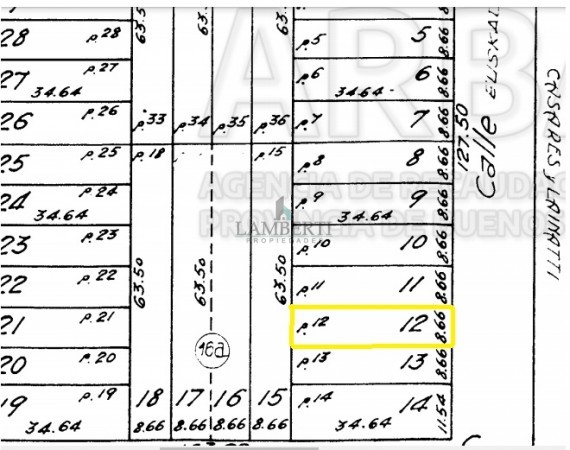 28 p.28 63.50 63.50 p.5 5 8.66
27 p.27 p.6 6 8.66
34.64 34.64
26 p.26 p.33 p.34 p.35 p.36 p.7 7 8.66
25 p.25 p.18 p.15 p.8 8 8.66
24 p.24 p.9 9 8.66
34.64 34.64
23 p.23 p.10 10 8.66
22 p.22 63.50 63.50 63.50 p.11 11 8.66
21 p.21 p.12 12 8.66
16a
20 p.20 p.13 13 8.66
19 p.19 18 17 16 15 p.14 14 11.54
34.64 8.66 8.66 8.66 8.66 34.64
127.50
Calle EUSKAL
CASARES Y LAINATTI
ARB
AGENCIA DE RECAUDA
PROVINCIA DE BUENOS
LAMBERTI
PROPIEDADES